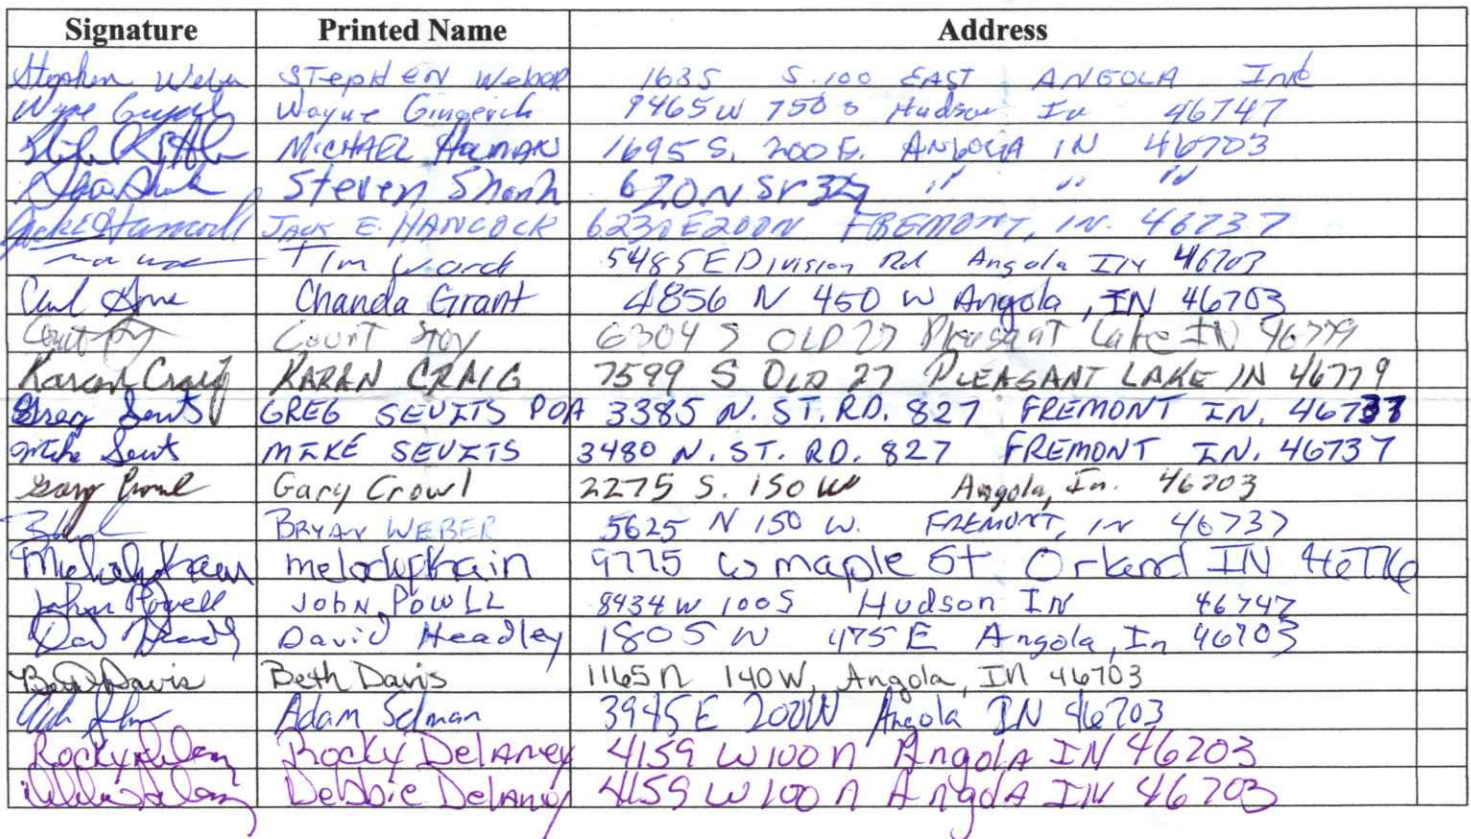 Signature Printed Name Address
Stephen Weber STEPHEN Weber 1635 S. 100 EAST ANGOLA IND
Wayne Gingerich 9465 W 750 S Hudson In 46747
MICHAEL HOLMAN 1695 S. 200 E. ANGOLA IN 46703
Steven Shank 620 N Sr 327 " " "
Jack E Hancock JACK E. HANCOCK 6230 E 200 N FREMONT, IN. 46737
Tim Ward 5485 E Division Rd Angola IN 46703
Chanda Grant 4856 N 450 W Angola, IN 46703
Court Stoy 6304 S OLD 27 Pleasant Lake IN 46779
Karan Craig KARAN CRAIG 7599 S OLD 27 PLEASANT LAKE IN 46779
Greg Sevits GREG SEVITS POA 3385 N. ST. RD. 827 FREMONT IN. 46737
Mike Sevits MIKE SEVITS 3480 N. ST. RD. 827 FREMONT IN. 46737
Gary Crowl Gary Crowl 2275 S. 150 W Angola, In. 46703
BRYAN WEBER 5625 N 150 W. FREMONT, IN 46737
melody Krain 9775 W maple St Orland IN 46776
John Powell JOHN POWLL 8434 W 100 S Hudson IN 46747
David Headley 1805 W 475 E Angola, In 46703
Beth Davis Beth Davis 1165 N 140 W, Angola, IN 46703
Adam Selman 3945 E 200 N Angola IN 46703
Rocky Delaney Rocky DelANey 4159 W 100 N AngolA IN 46703
Debbie Delaney Debbie DelANey 4159 W 100 N AngolA IN 46703